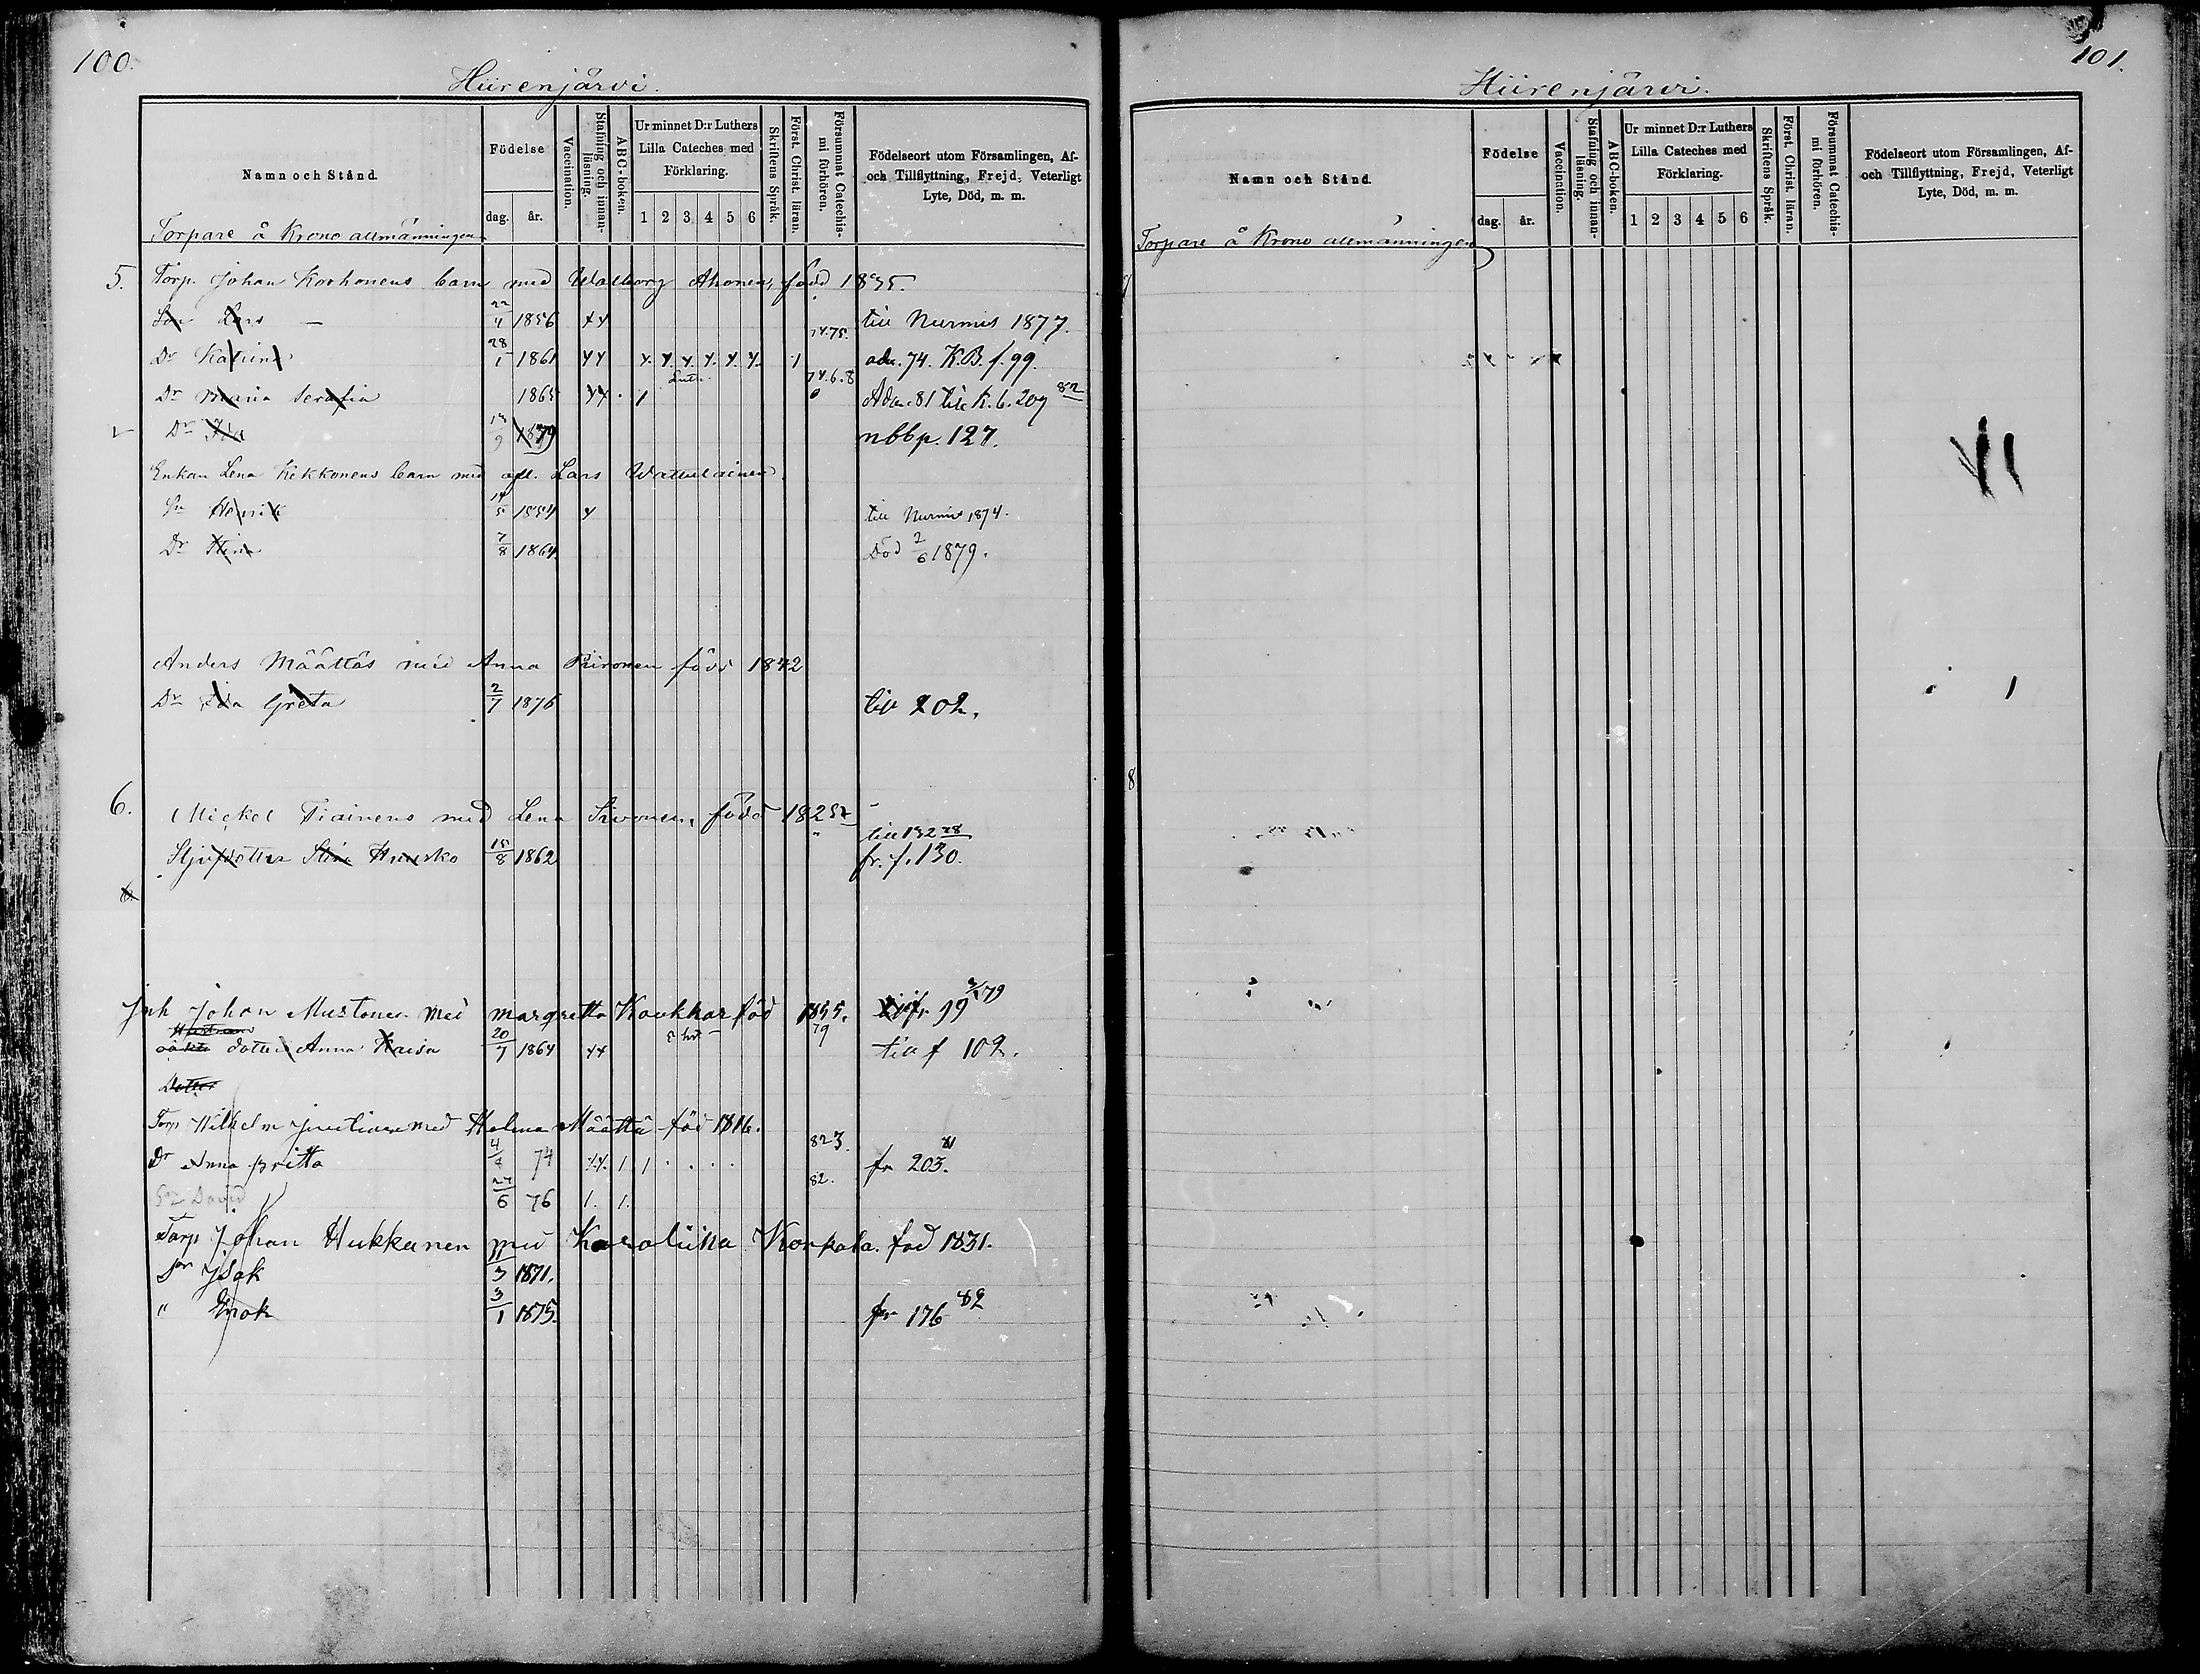 100.
Hiirenjärvi.
Namn och Stånd.
Födelse
dag. år.
Vaccination.
Stafning och innanläsning.
ABC-boken.
Ur minnet D:r Luthers Lilla Cateches med Förklaring.
1 2 3 4 5 6
Skriftens Språk.
Först. Christ. läran.
Försummat Catechismi förhören.
Födelseort utom Församlingen, Af- och Tillflyttning, Frejd, Veterligt Lyte, Död, m. m.
Torpare å Krono allmänningen
5. Torp. Johan Korhonens barn med Walborg Ahonen, född 1835.
Son Lars – 22/4 1856 74.75. till Nurmis 1877.
Dr Katrina 28/1 1861 adm. 74. K.B. f. 99.
Dr Maria Serafia 1865 74.6.8 Adm. 81 till K.b. 207 82
Dr Ida 9 1879 nbbp. 127.
Enkan Lena Kekkonens barn med afl. Lars Wattulainen
Sn Henrik 14/5 1854 till Nurmis 1874.
Dr Stina 7/8 1864 Död 2/6 1879.
Anders Määttäs med Anna Piironen född 1842
Dr Ida Greta 2/7 1876 till 202.
6. Mickel Tiainens med Lena Sivonen, född 1825
till 132 78
Stjufdotter Stina Hansko 15/8 1862 fr. f. 130.
Inh Johan Mustonen med margretta Koukkar föd 1855. 99 79
dotter Anna Kaisa 20/7 1864 79 till f 102.
Dotter
Torp Wilhelm med Helena Määttä föd 1816.
Dr Anna britta 4 74 823. fr 203. 81
Sn David 27/6 76 82.
Torp Johan Hukkanen med Karoliina Korpela. föd 1831.
son Isak 3 1871.
" Enok 3/1 1875. fr 176 82
101.
Hiirenjärvi.
Namn och Stånd.
Födelse
dag. år.
Vaccination.
Stafning och innanläsning.
ABC-boken.
Ur minnet D:r Luthers Lilla Cateches med Förklaring.
1 2 3 4 5 6
Skriftens Språk.
Först. Christ. läran.
Försummat Catechismi förhören.
Födelseort utom Församlingen, Af- och Tillflyttning, Frejd, Veterligt Lyte, Död, m. m.
Torpare å Krono allmänningen
8